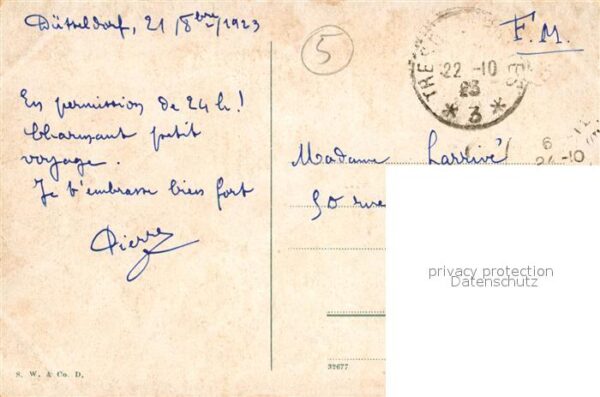 Düsseldorf, 21 8bre 1923
5
F.M.
22-10
23
* 3 *
En permission de 24h!
Charmant petit
voyage.
Je t'embrasse bien fort
Pierre
6
24-10
Madame Larrivé
50 rue
privacy protection
Datenschutz
S. W. & Co. D.
32677